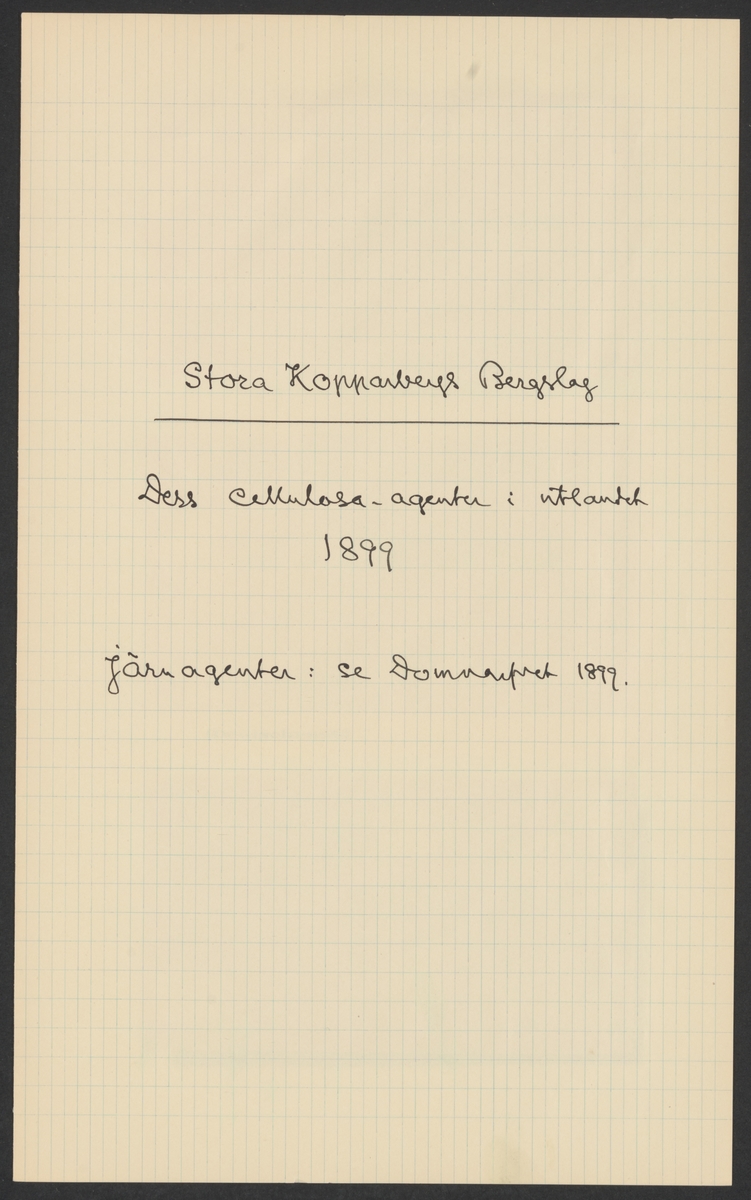 Stora Kopparbergs Bergslag
Dess cellulosa-agenter i utlandet
1899
järnagenter: se Domnarfvet 1899.